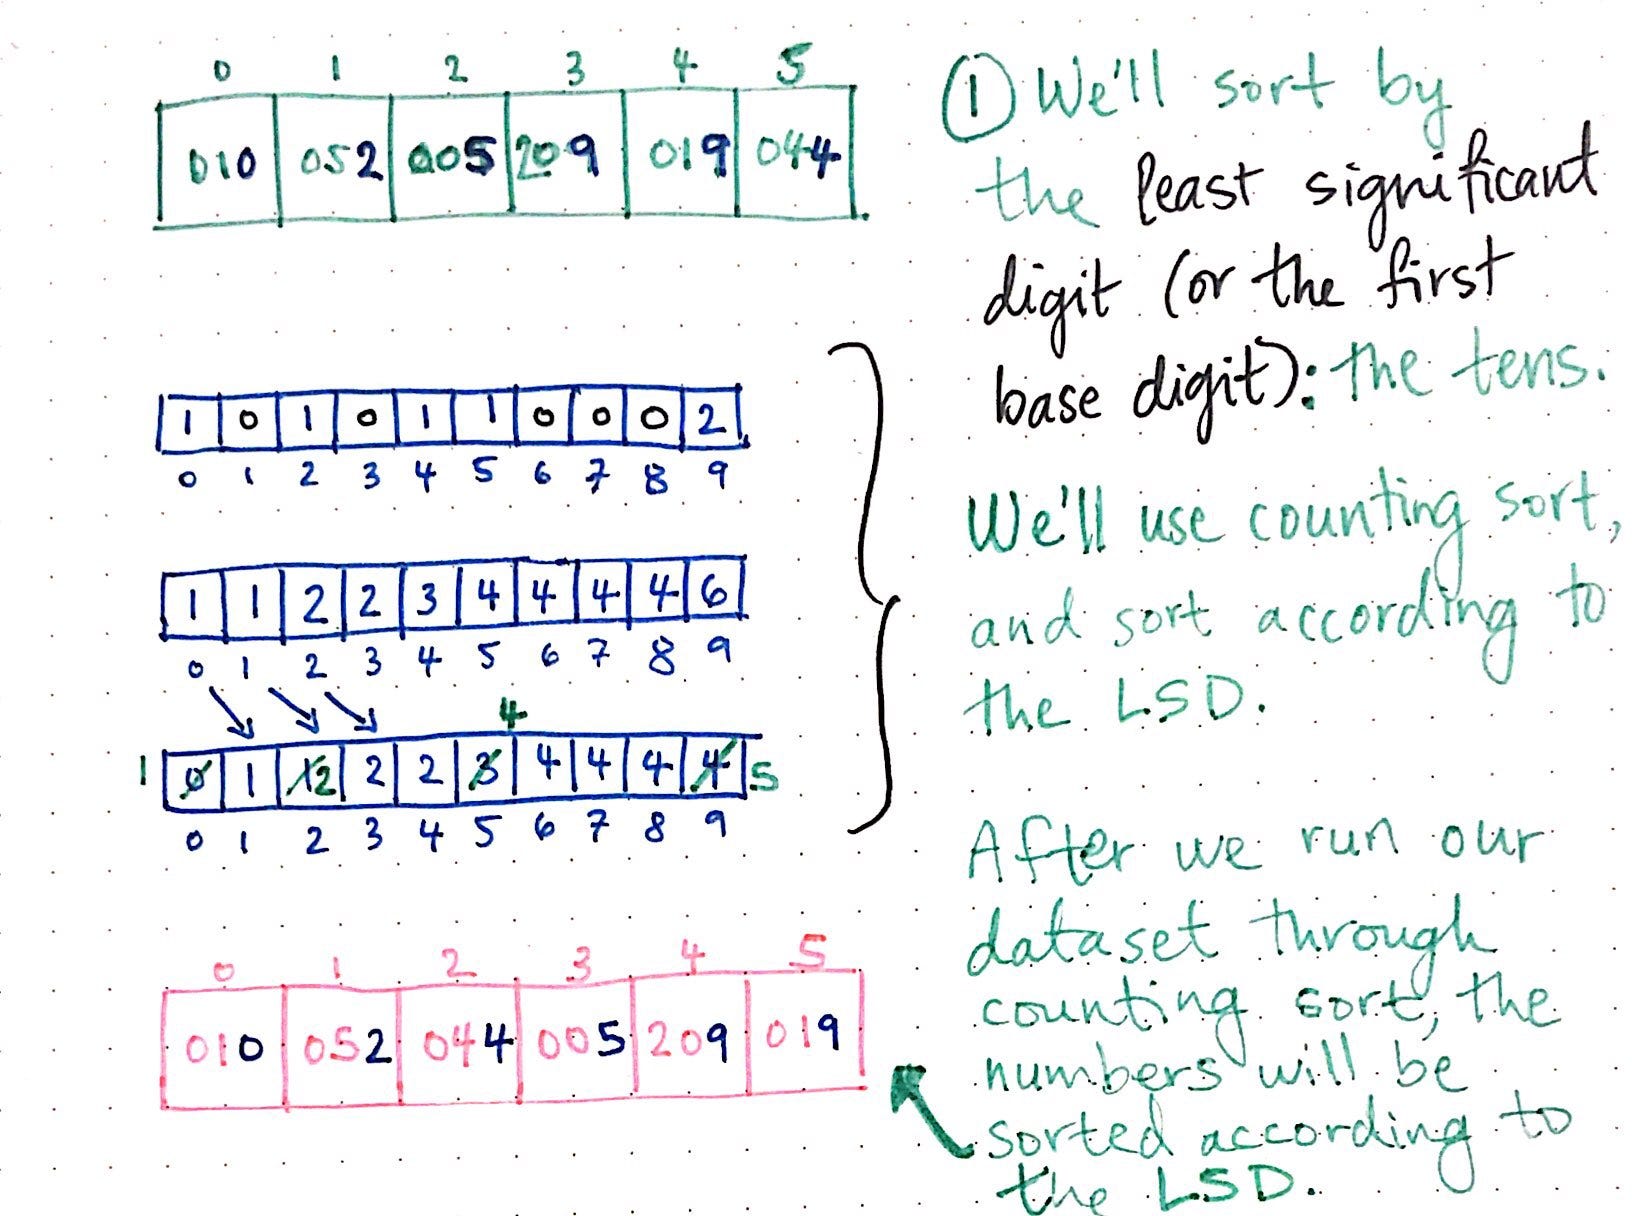 0 1 2 3 4 5
010 052 005 209 019 044
1 0 1 0 1 1 0 0 0 2
0 1 2 3 4 5 6 7 8 9
1 1 2 2 3 4 4 4 4 6
0 1 2 3 4 5 6 7 8 9
4
1 0 1 12 2 2 3 4 4 4 4 5
0 1 2 3 4 5 6 7 8 9
0 1 2 3 4 5
010 052 044 005 209 019
① We'll sort by
the least significant
digit (or the first
base digit): the tens.
We'll use counting sort,
and sort according to
the LSD.
After we run our
dataset through
counting sort, the
numbers will be
sorted according to
the LSD.